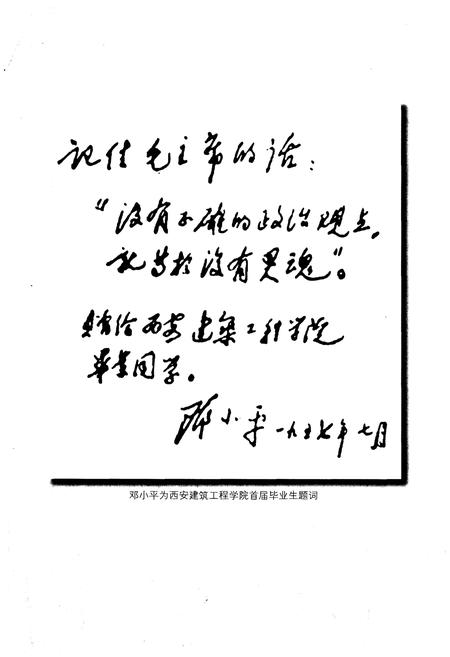 记住毛主席的话：
“没有正确的政治观点，
就等于没有灵魂”。
赠给西安建筑工程学院
毕业同学。
邓小平 一九五七年七月
邓小平为西安建筑工程学院首届毕业生题词